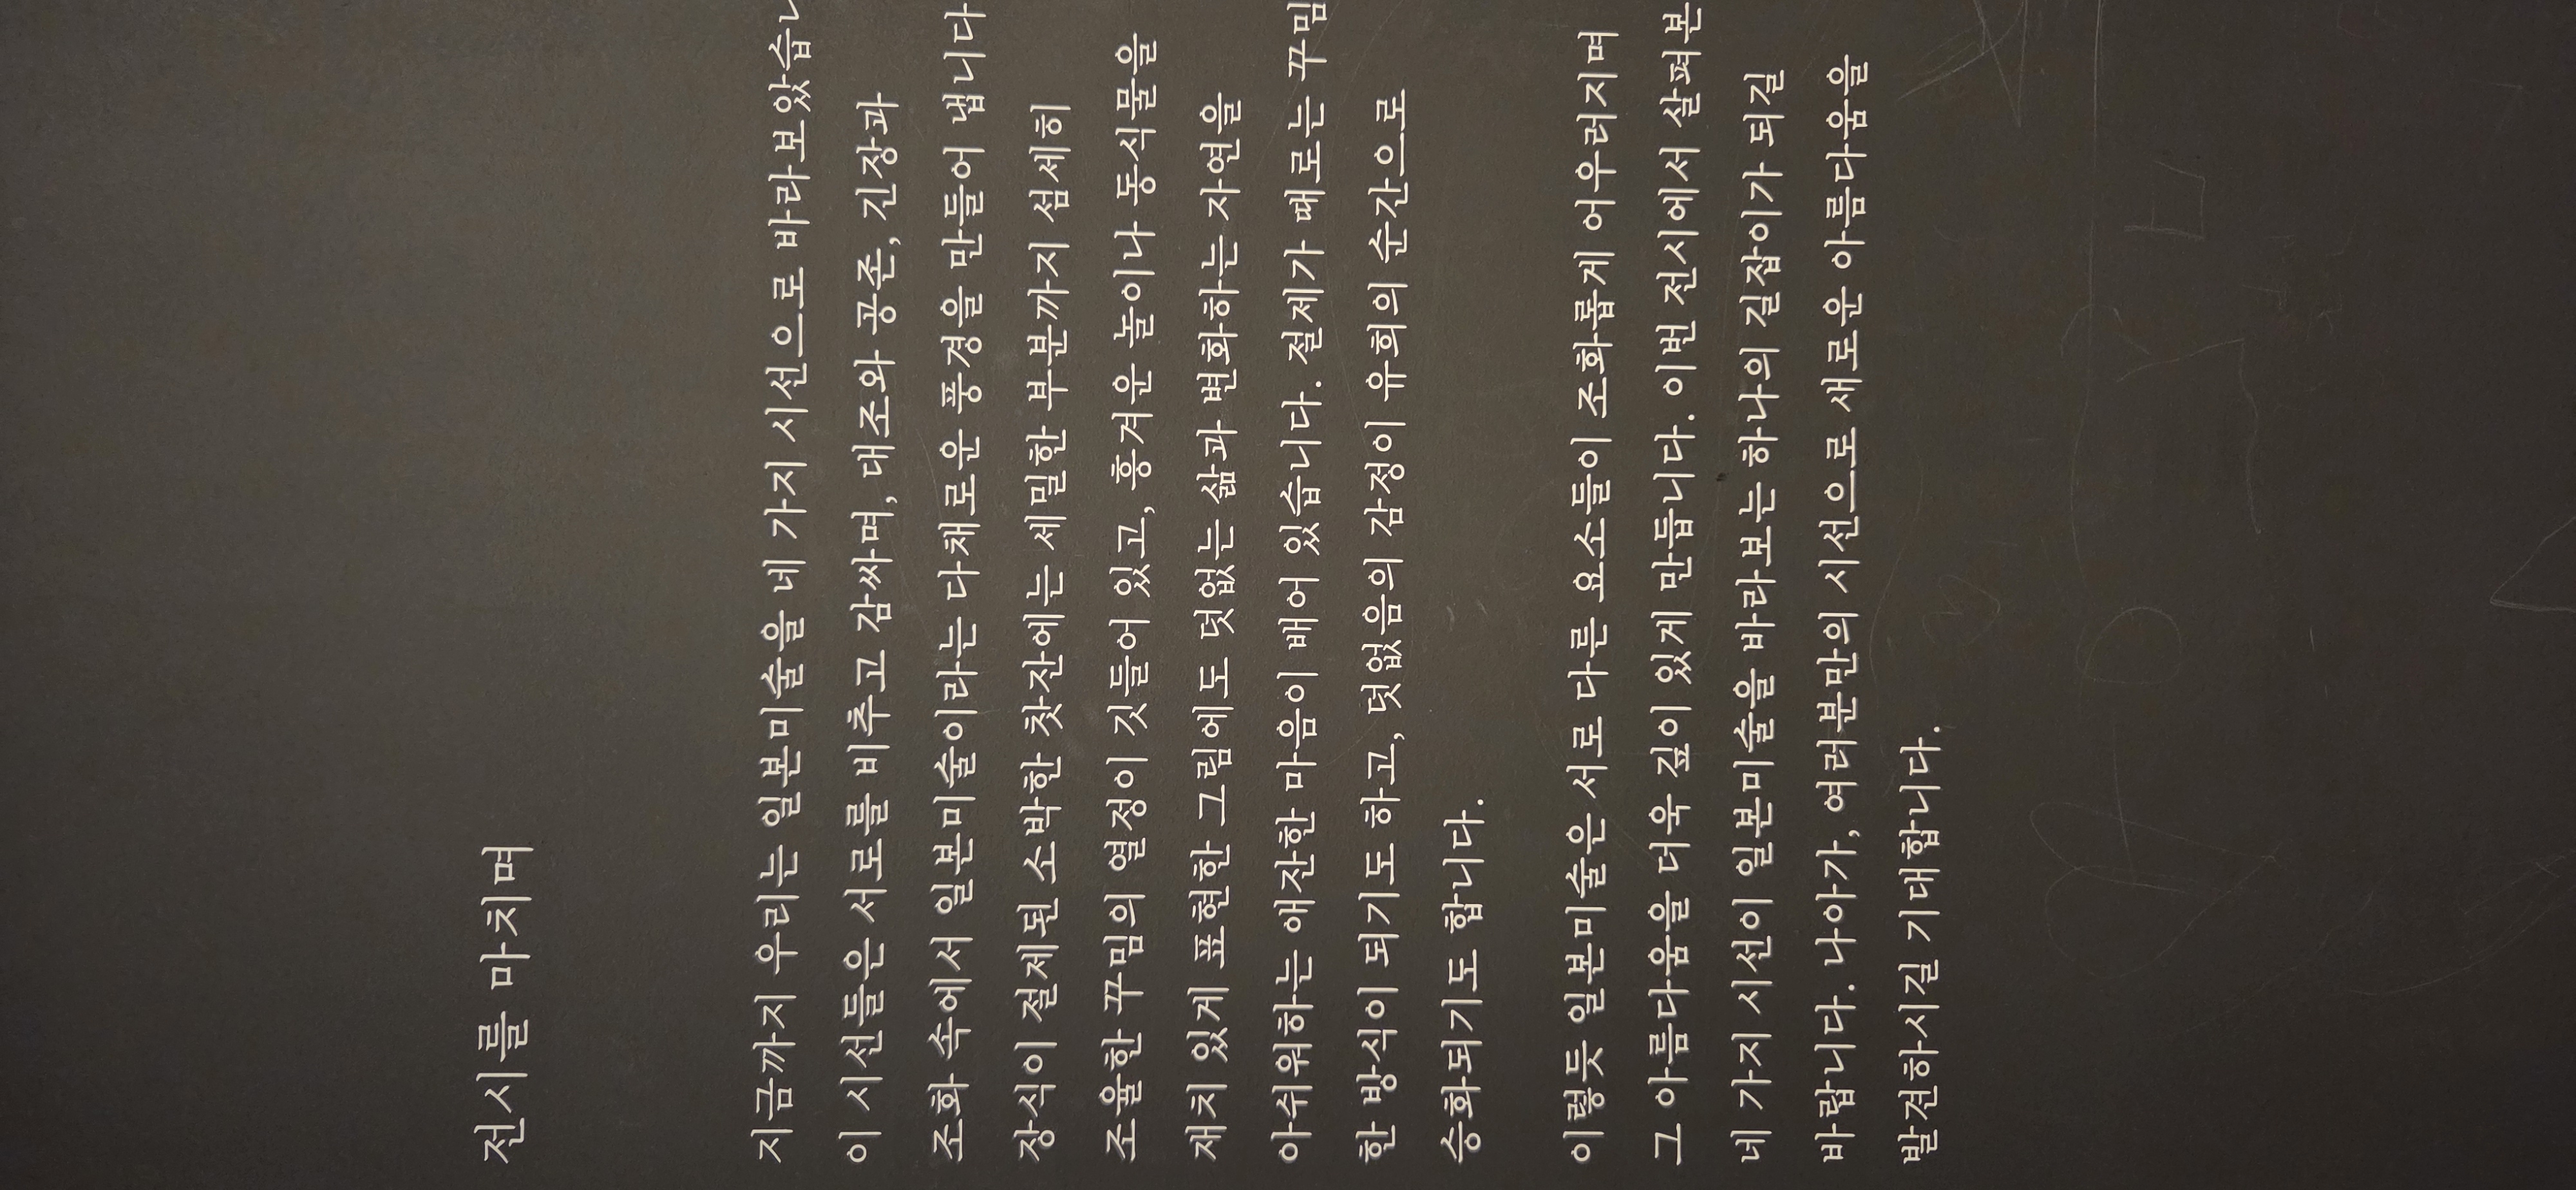 전시를 마치며
지금까지 우리는 일본미술을 네 가지 시선으로 바라보았습니
이 시선들은 서로를 비추고 감싸며, 대조와 공존, 긴장과
조화 속에서 일본미술이라는 다채로운 풍경을 만들어 냅니다
장식이 절제된 소박한 찻잔에는 세밀한 부분까지 섬세히
조율한 꾸밈의 열정이 깃들어 있고, 흥겨운 놀이나 동식물을
재치 있게 표현한 그림에도 덧없는 삶과 변화하는 자연을
아쉬워하는 애잔한 마음이 배어 있습니다. 절제가 때로는 꾸밈
한 방식이 되기도 하고, 덧없음의 감정이 유희의 순간으로
승화되기도 합니다.
이렇듯 일본미술은 서로 다른 요소들이 조화롭게 어우러지며
그 아름다움을 더욱 깊이 있게 만듭니다. 이번 전시에서 살펴본
네 가지 시선이 일본미술을 바라보는 하나의 길잡이가 되길
바랍니다. 나아가, 여러분만의 시선으로 새로운 아름다움을
발견하시길 기대합니다.